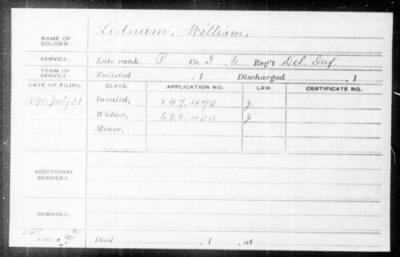 NAME OF SOLDIER: Lednum, William,
SERVICE: Late rank, P Co. I, 6 Reg't Del. Inf.
TERM OF SERVICE: Enlisted , 1 Discharged , 1
DATE OF FILING. CLASS. APPLICATION NO. LAW. CERTIFICATE NO.
1890 July 31 Invalid, 847,470 J.
Widow, 622,400 J
Minor,
ADDITIONAL SERVICES:
REMARKS:
Died , 1 , at